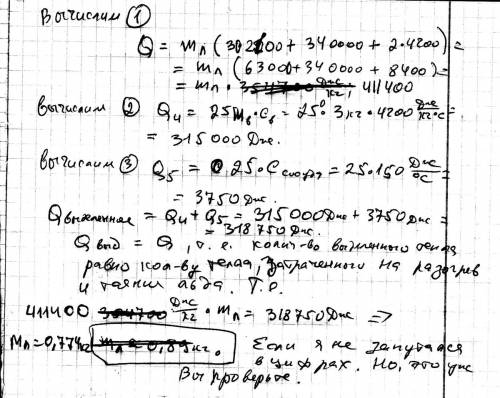 Вычислим ①
Q = mл (30·2100 + 340000 + 2·4200) =
= mл (63000 + 340000 + 8400) =
= mл · 411400
Вычислим ② Q4 = 25 mв·Cв = 25°·3кг·4200 Дж/кг·°С =
= 315000 Дж.
Вычислим ③ Q5 = 25·Cсосуда = 25·150 Дж/°С =
= 3750 Дж.
Qвыделенная = Q4 + Q5 = 315000 Дж + 3750 Дж =
= 318750 Дж.
Qвыд = Q, т.е. колич-во выделенного тепла
равно кол-ву тепла, затраченного на разогрев
и таяние льда. Т.О.
411400 Дж/кг · mл = 318750 Дж =>
Mл = 0,774 кг. Если я не запутался
в цифрах. Но, это уже
Вы проверьте.